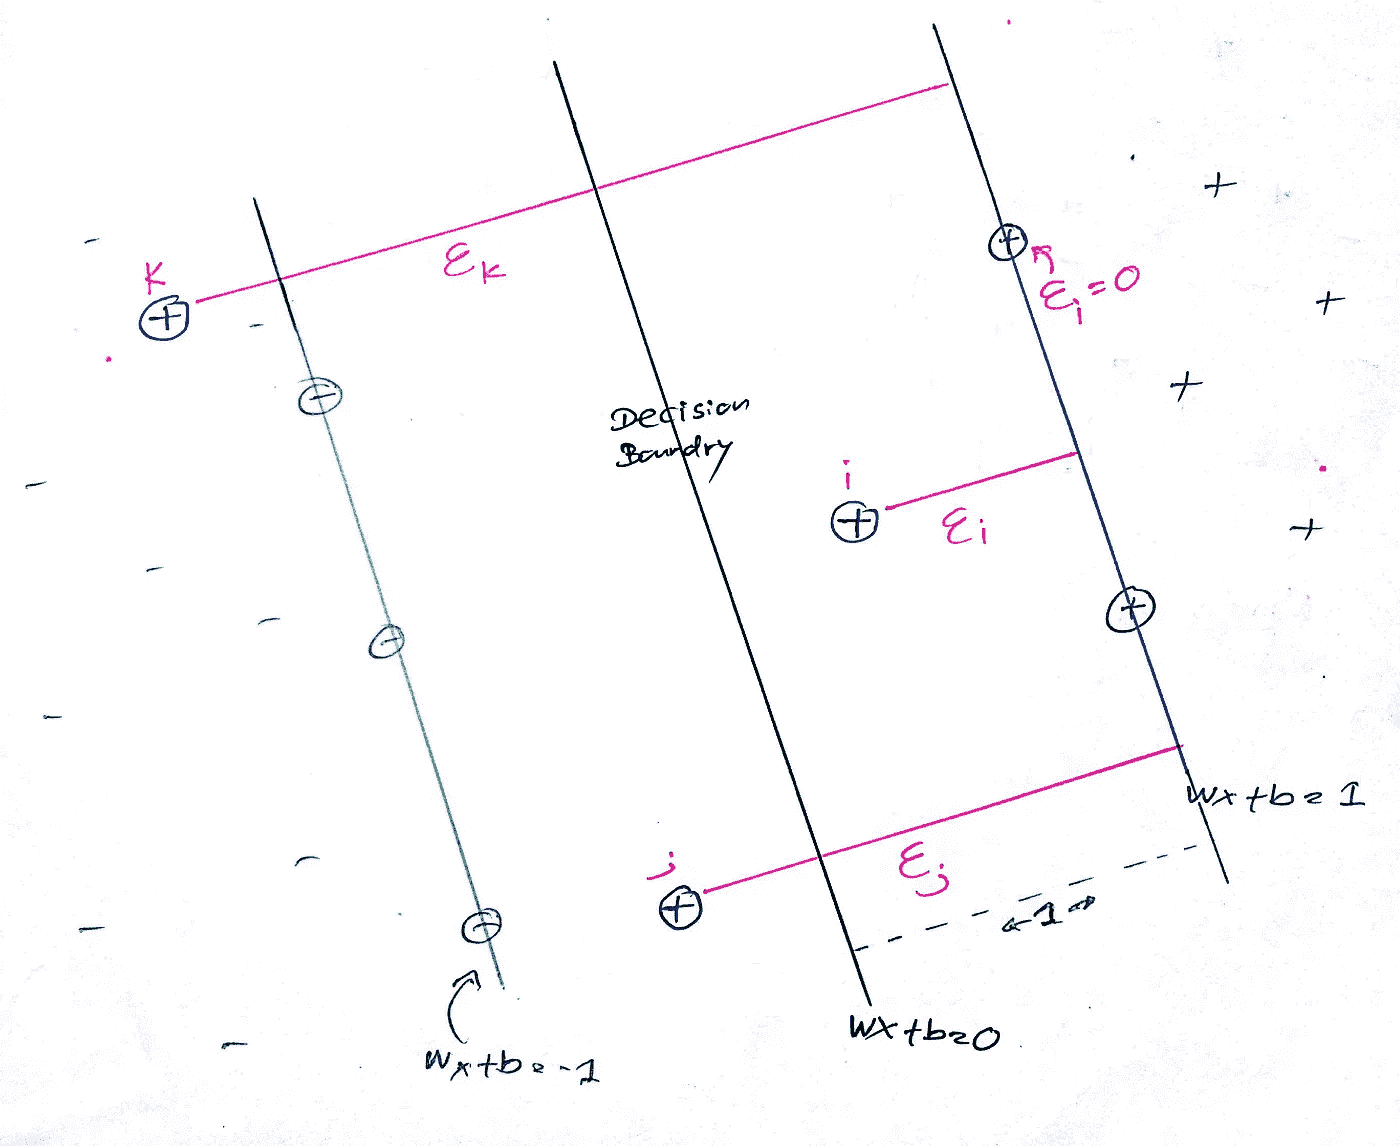 K
εk
εi=0
Decision
Boundry
i
εi
wx+b=1
j
εj
←1→
wx+b=0
wx+b=-1